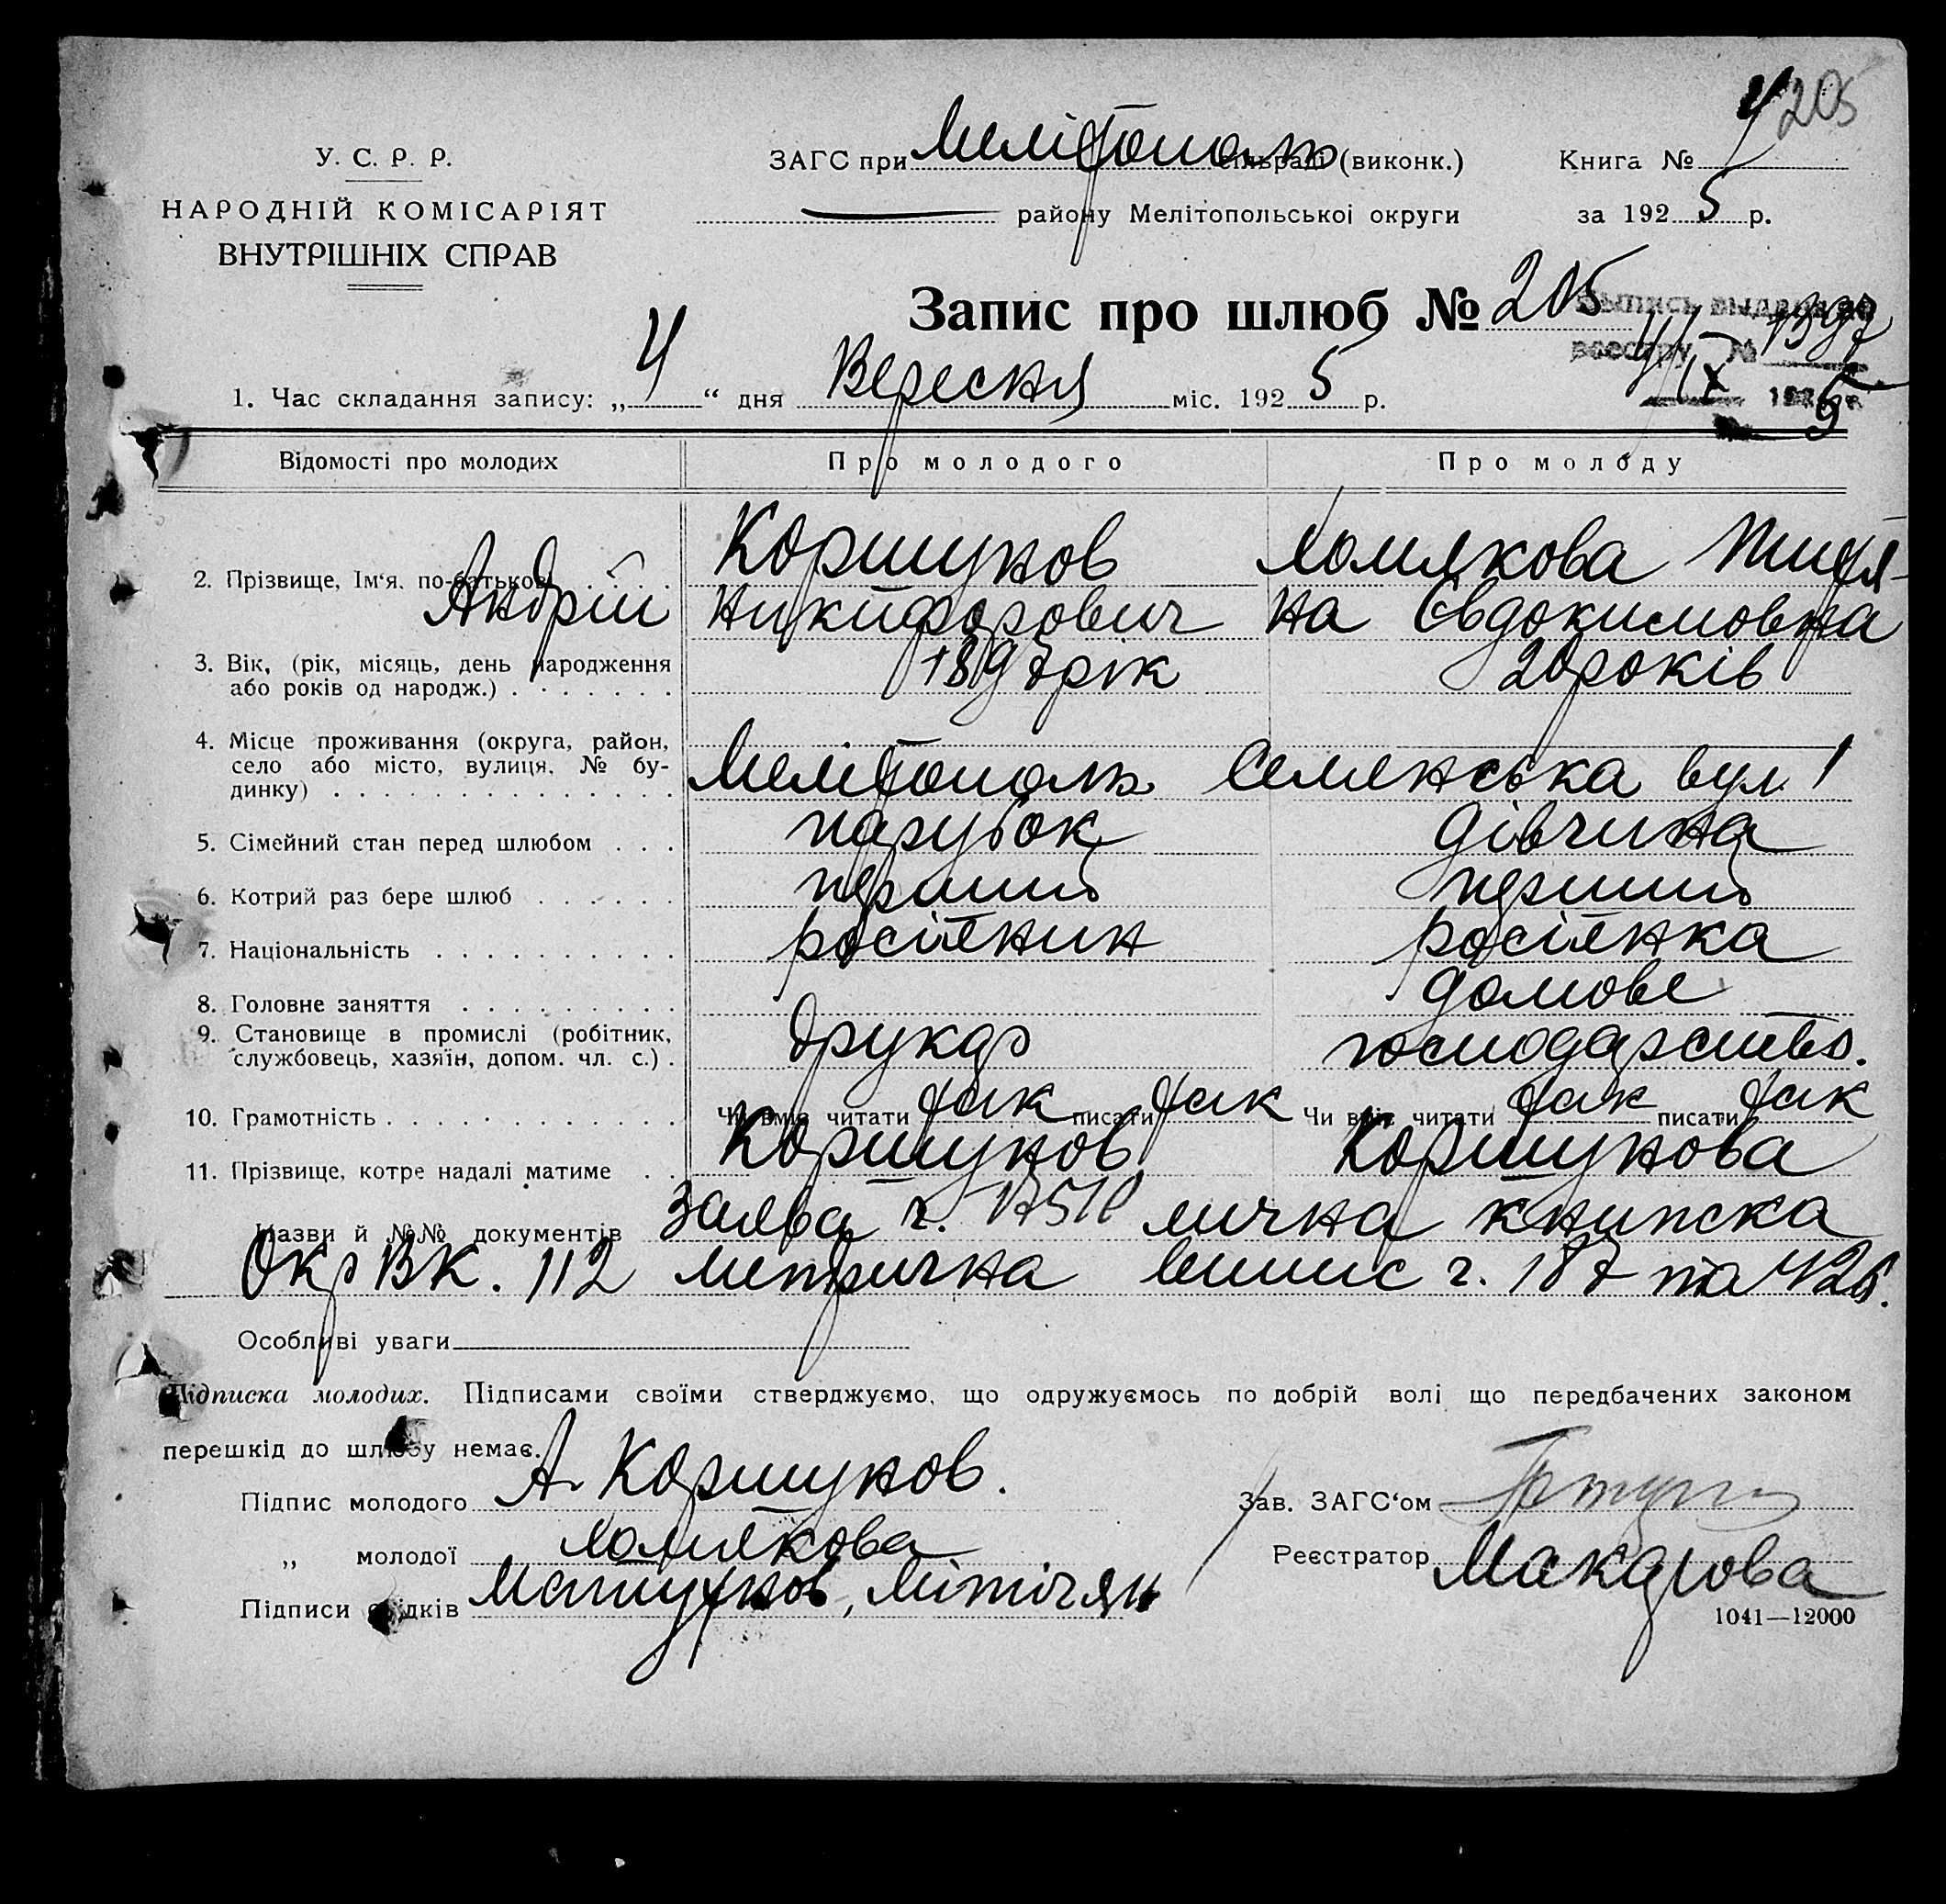 205
У. С. Р. Р.
НАРОДНІЙ КОМІСАРІЯТ
ВНУТРІШНІХ СПРАВ
ЗАГС при Мелітополь сільраді (виконк.)
району Мелітопольської округи
Книга № 4
за 1925 р.
Запис про шлюб № 205
Выпись выдана по
реестру № 1397
4/IX 1925
1. Час складання запису: „4“ дня Вересня міс. 1925 р.
Відомості про молодих Про молодого Про молоду
2. Прізвище, Ім‘я, по-батькові Коршунов Хомякова Титя-
Андрій Никифорович на Євдокимовна
3. Вік, (рік, місяць, день народження 1897 рік 20 років
або років од народж.)
4. Місце проживання (округа, район,
село або місто, вулиця, № бу- Мелітополь Семенська вул. 1
динку)
5. Сімейний стан перед шлюбом парубок дівчина
6. Котрий раз бере шлюб перший перший
7. Національність росіянин росіянка
8. Головне заняття домове
9. Становище в промислі (робітник, друкар господарство.
службовець, хазяїн, допом. чл. с.)
10. Грамотність Чи вміє читати так писати так Чи вміє читати так писати так
11. Прізвище, котре надалі матиме Коршунов Коршунова
Назви й №№ документів Заява ч. лична книжка
Окр ВК. 112 метрична випис ч. 187 та 426.
Особливі уваги
Підписка молодих. Підписами своїми стверджуємо, що одружуємось по добрій волі що передбачених законом
перешкід до шлюбу немає.
Підпис молодого А. Коршунов.
„ молодої Хомякова
Підписи свідків
Зав. ЗАГС‘ом
Реєстратор Макарова
1041—12000